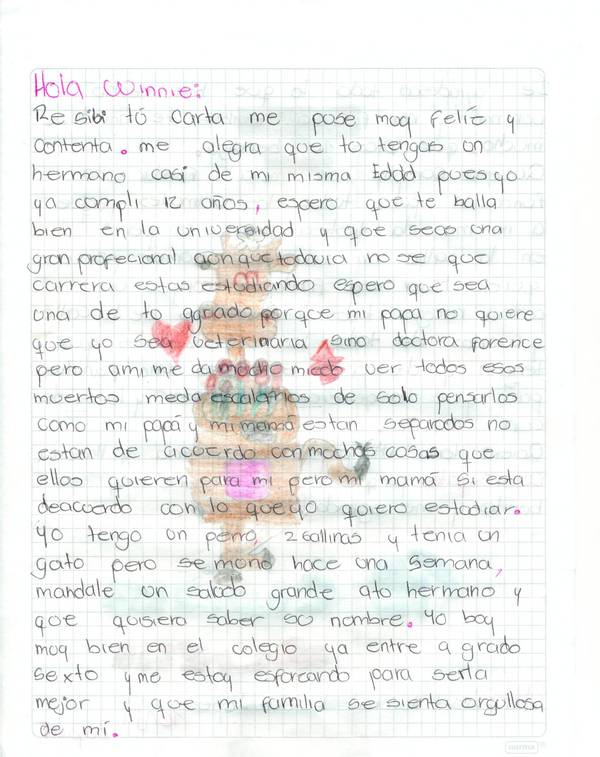 Hola Winnie:
Resibi tú carta me puse muy Feliz y
contenta. me alegra que tu tengas un
hermano casi de mi misma Edad pues yo
ya cumpli 12 años, espero que te balla
bien en la universidad y que seas una
gran profecional aunque todavia no se que
carrera estas estudiando espero que sea
una de tu agrado porque mi papa no quiere
que yo sea veterinaria sino doctora forence
pero ami me da mucho miedo ver todos esos
muertos meda escalofrios de solo pensarlos
como mi papá y mi mamá estan separados no
estan de acuerdo con muchas cosas que
ellos quieren para mi pero mi mamá si esta
deacuerdo con lo que yo quiero estudiar.
yo tengo un perro, 2 Gallinas y tenia un
gato pero se murio hace una Semana,
mandale un saludo grande atu hermano y
que quisiera saber su nombre. yo boy
muy bien en el colegio ya entre a grado
sexto y me estoy esforcando para serla
mejor y que mi familia se sienta orgullosa
de mí.
norma